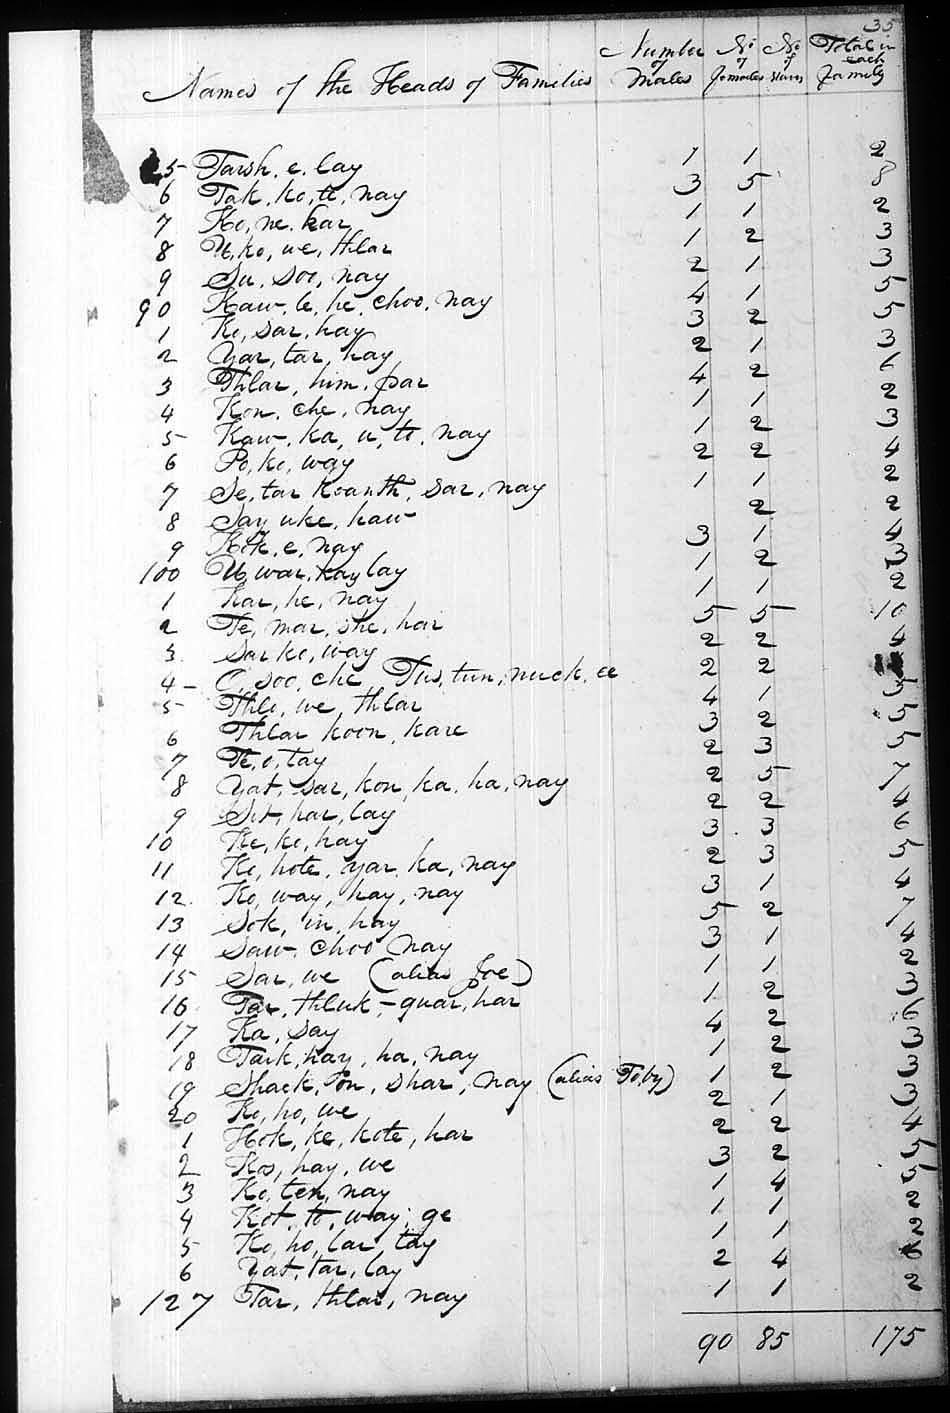 35
Names of the Heads of Families Number of Males No of Females No of Slaves Total in each family
5 Tarsh, e, lay 1 1 2
6 Tak, ko, te, nay 3 5 8
7 Ko, ne, kar 1 1 2
8 U, ko, we, thlar 1 2 3
9 Su, soo, nay 2 1 3
90 Kaw, le, he, choo, nay 4 1 5
1 Ko, sar, hay 3 2 5
2 Yar, tar, hay 2 1 3
3 Thlar, him, par 4 2 6
4 Kon, che, nay 1 1 2
5 Kaw, ka, u, te, nay 1 2 3
6 Po, ko, way 2 2 4
7 Se, tar koanth, sar, nay 1 1 2
8 Say uke, haw 2 2
9 Kok, e, nay 3 1 4
100 U, war, kay lay 1 2 3
1 Kar, he, nay 1 1 2
2 Te, mar, she, har 5 5 10
3 Sar ko, way 2 2 4
4 - O, soo, che Tus, tun, nuck, ee 2 2
5 Thlo, we, thlar 4 1 5
6 Thlar koon, kare 3 2 5
7 Te, o, tay 2 3 5
8 Yat, sar, kon, ka, ha, nay 2 5 7
9 Sit, har, lay 2 2 4
10 Ke, ke, hay 3 3 6
11 Ke, hote, yar, ka, nay 2 3 5
12 Ko, way, hay, nay 3 1 4
13 Sok, in, hay 5 2 7
14 Saw, choo nay 3 1 4
15 Sar, we (alias Joe) 1 1 2
16 Tar, thluk, - quar, har 1 2 3
17 Ka, say 4 2 6
18 Taik, hay, ha, nay 1 2 3
19 Shack, on, shar, nay (alias Toby) 1 2 3
20 Ko, ho, we 2 1 3
1 Hok, ke, kote, har 2 2 4
2 Kos, hay, we 3 2 5
3 Ko, ten, nay 1 4 5
4 Kot, to, way, ge 1 1 2
5 Ko, ho, lar, tay 1 1 2
6 Yat, tar, lay 2 4 6
127 Tar, thlar, nay 1 1 2
90 85 175